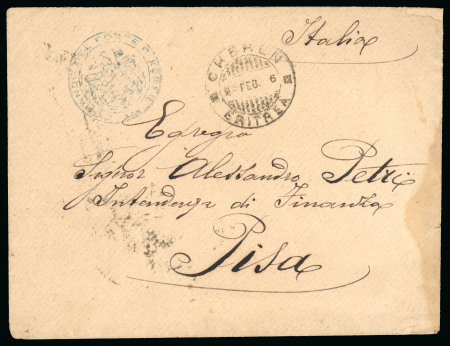 Italia
CHEREN
FEB. 6
ERITREA
Egregio
Signor Alessandro Petri
Intendenza di Finanza
Pisa